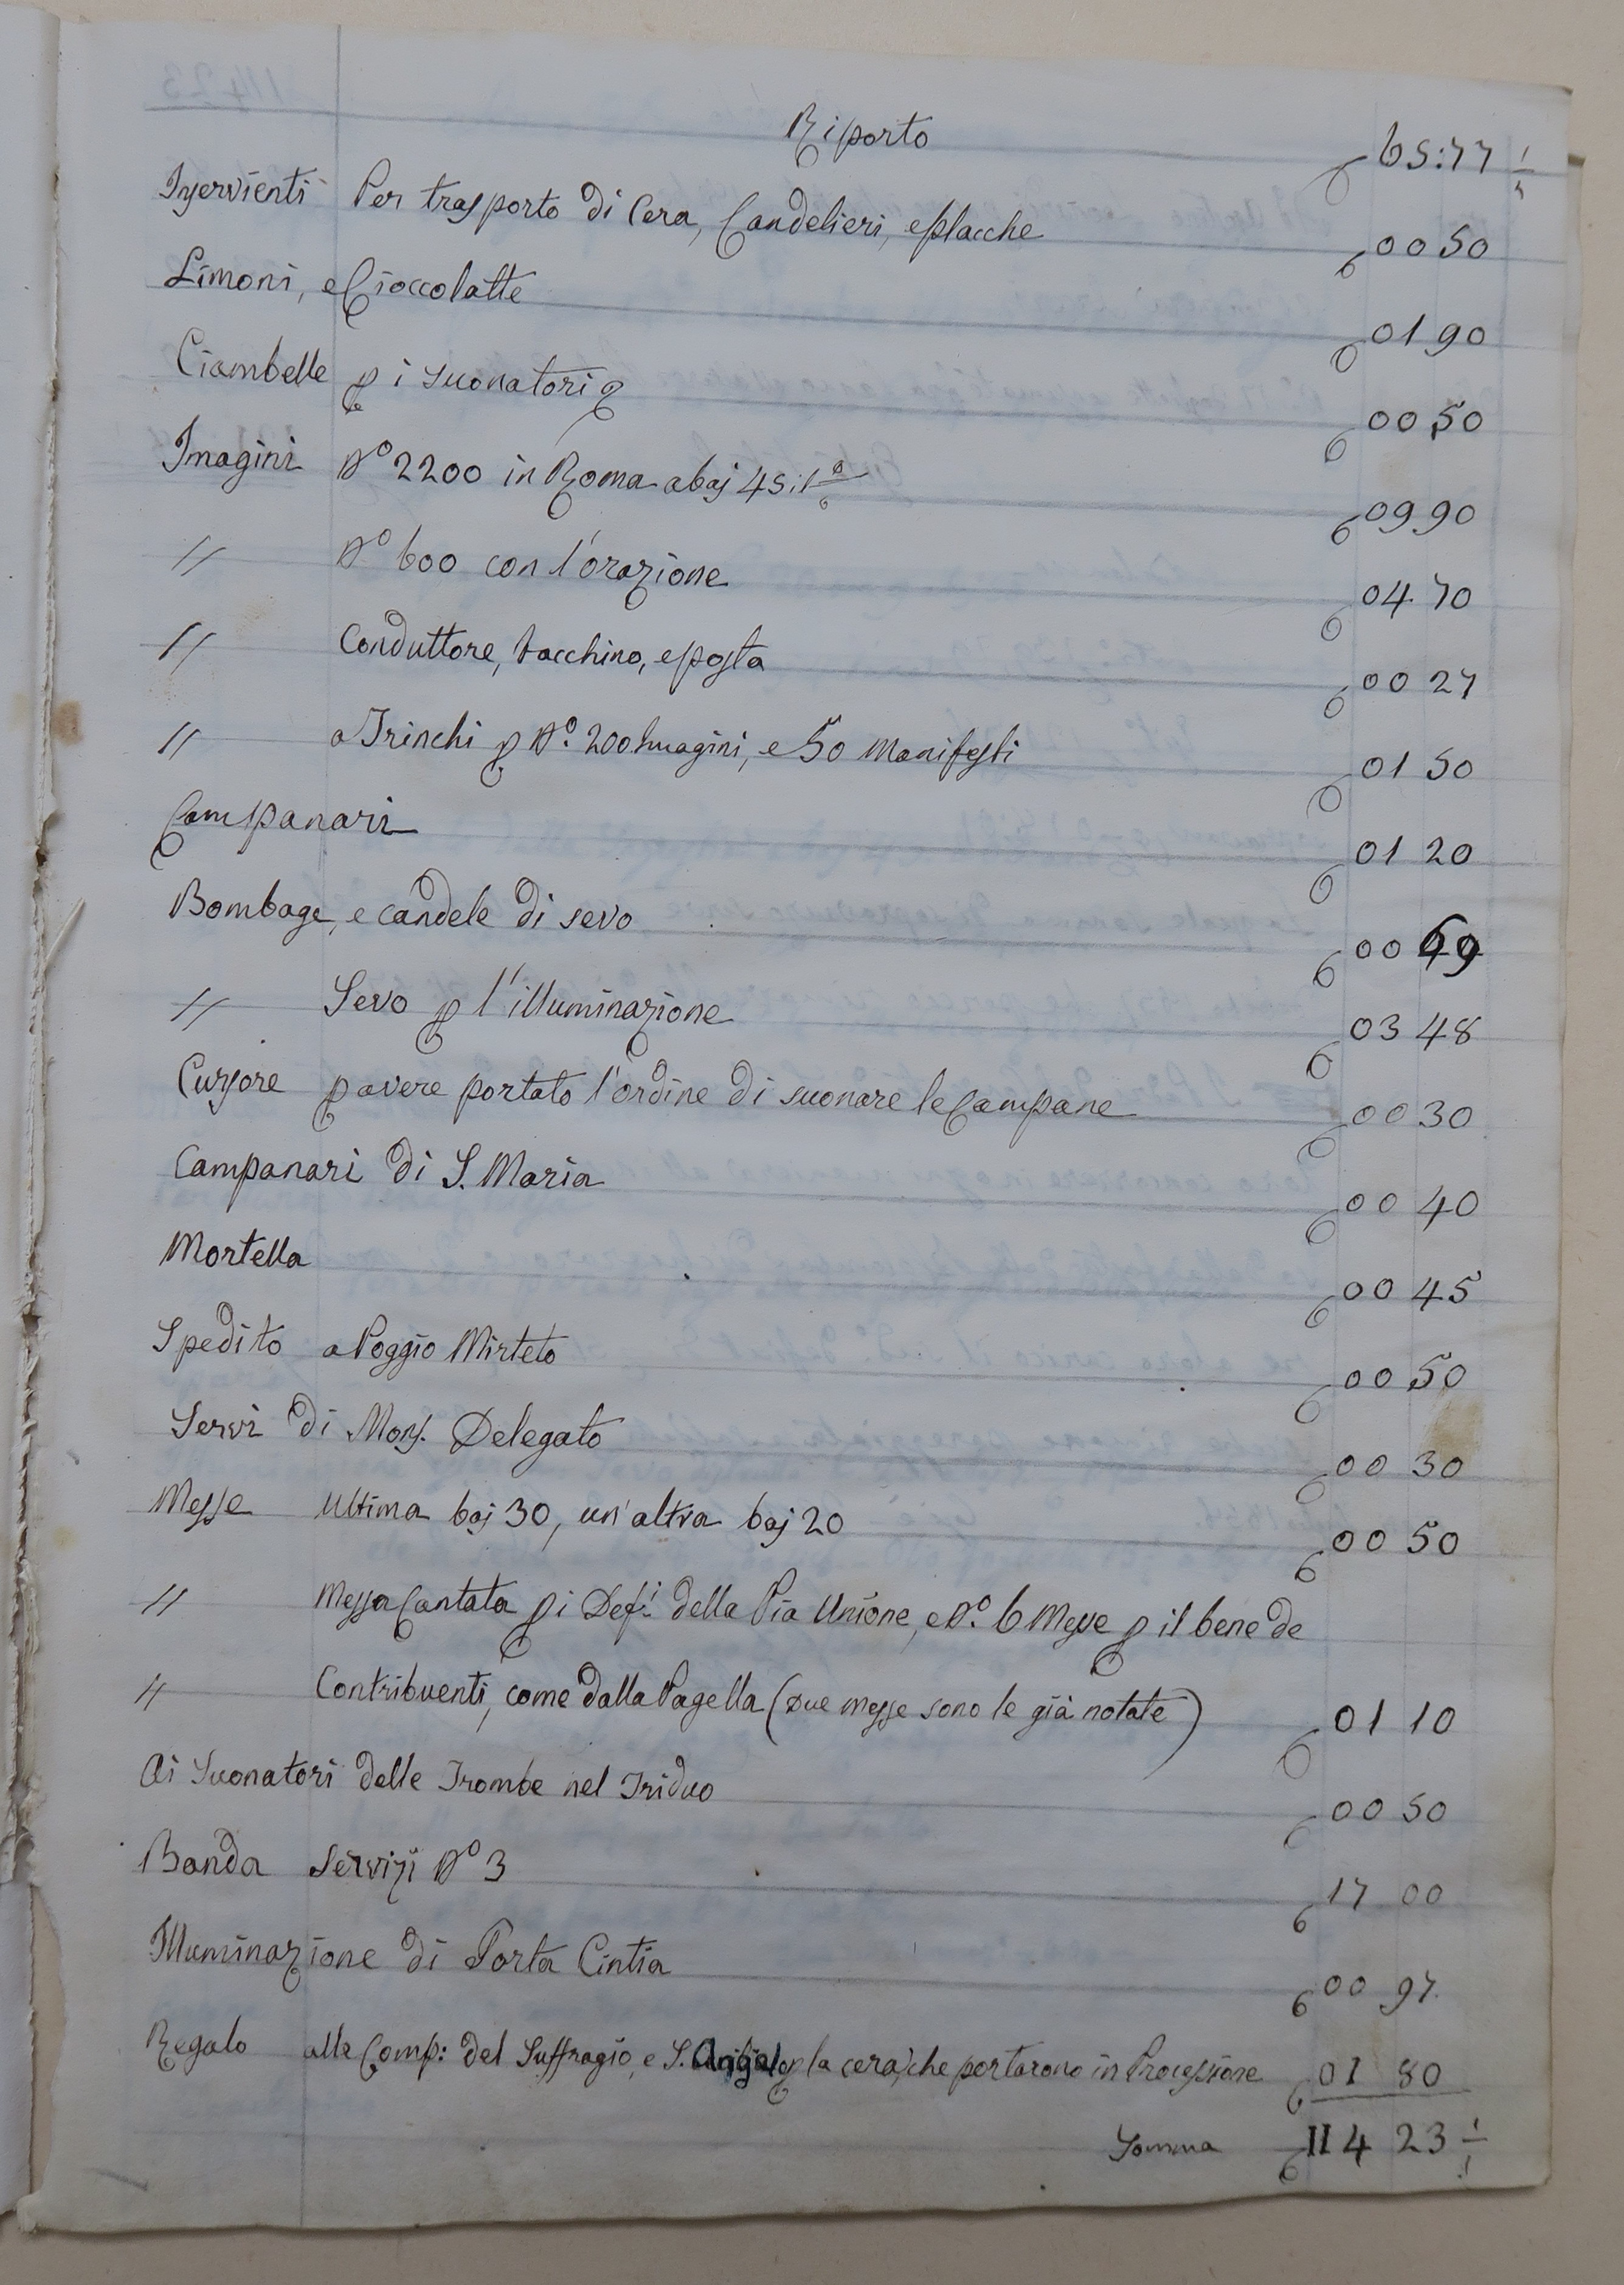 Riporto 65:77 ½
Inservienti Per trasporto di Cera, Candelieri, e placche 00 50
Limoni, e Cioccolatte 01 90
Ciambelle p i suonatori 00 50
Imagini N° 2200 in Roma a baj 45 09 90
〃 N° 600 con l'orazione 04 70
〃 Conduttore, facchino, e posta 00 27
〃 a Trinchi p N°. 200 Imagini, e 50 Manifesti 01 50
Campanari 01 20
Bombage, e candele di sevo 00 69
〃 Sevo p l'illuminazione 03 48
Cursore p avere portato l'ordine di suonare le Campane 00 30
Campanari di S. Maria 00 40
Mortella 00 45
Spedito a Poggio Mirteto 00 50
Servi di Mons. Delegato 00 30
Messe ultima baj 30, un'altra baj 20 00 50
〃 Messa Cantata p i Def.i della Pia Unione, e N°. 6 Messe p il bene de
〃 Contribuenti, come dalla Pagella (Due messe sono le già notate) 01 10
Ai Suonatori delle Trombe nel Triduo 00 50
Banda Servizi N° 3 17 00
Illuminazione di Porta Cintia 00 97
Regalo alle Comp: del Suffragio, e S. p la cera, che portarono in Processione 01 80
Somma 114 23 ½